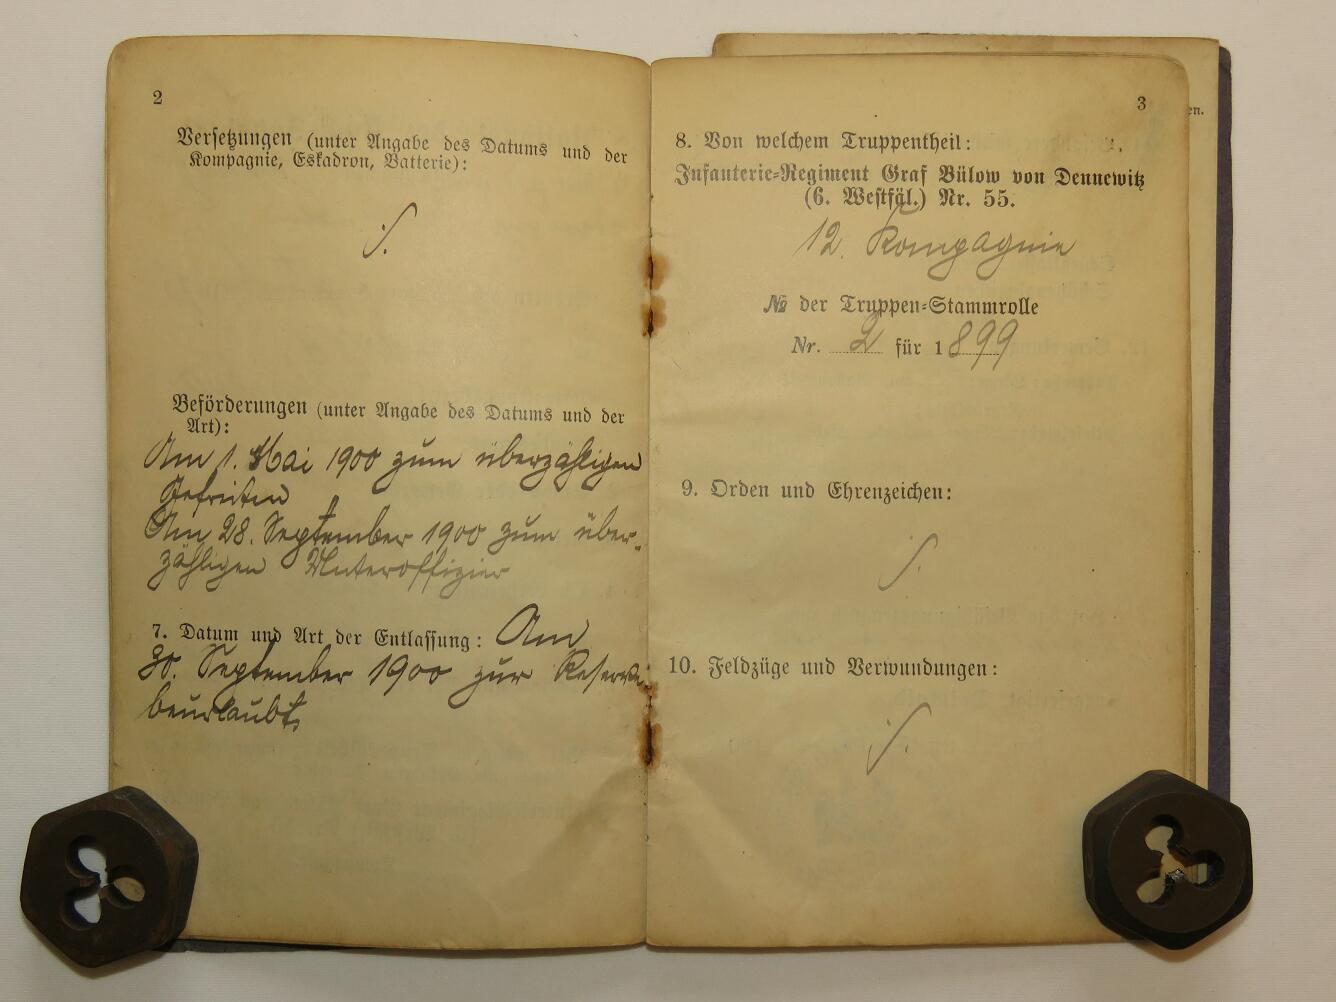 2
Versetzungen (unter Angabe des Datums und der
Kompagnie, Eskadron, Batterie):
Beförderungen (unter Angabe des Datums und der
Art):
Am 1. Mai 1900 zum überzähligen
Gefreiten
Am 28. September 1900 zum über-
zähligen Unteroffizier
7. Datum und Art der Entlassung: Am
30. September 1900 zur Reserve
beurlaubt.
3
8. Von welchem Truppentheil:
Infanterie-Regiment Graf Bülow von Dennewitz
(6. Westfäl.) Nr. 55.
12. Kompagnie
№ der Truppen-Stammrolle
Nr. 2 für 1899
9. Orden und Ehrenzeichen:
10. Feldzüge und Verwundungen:
en.